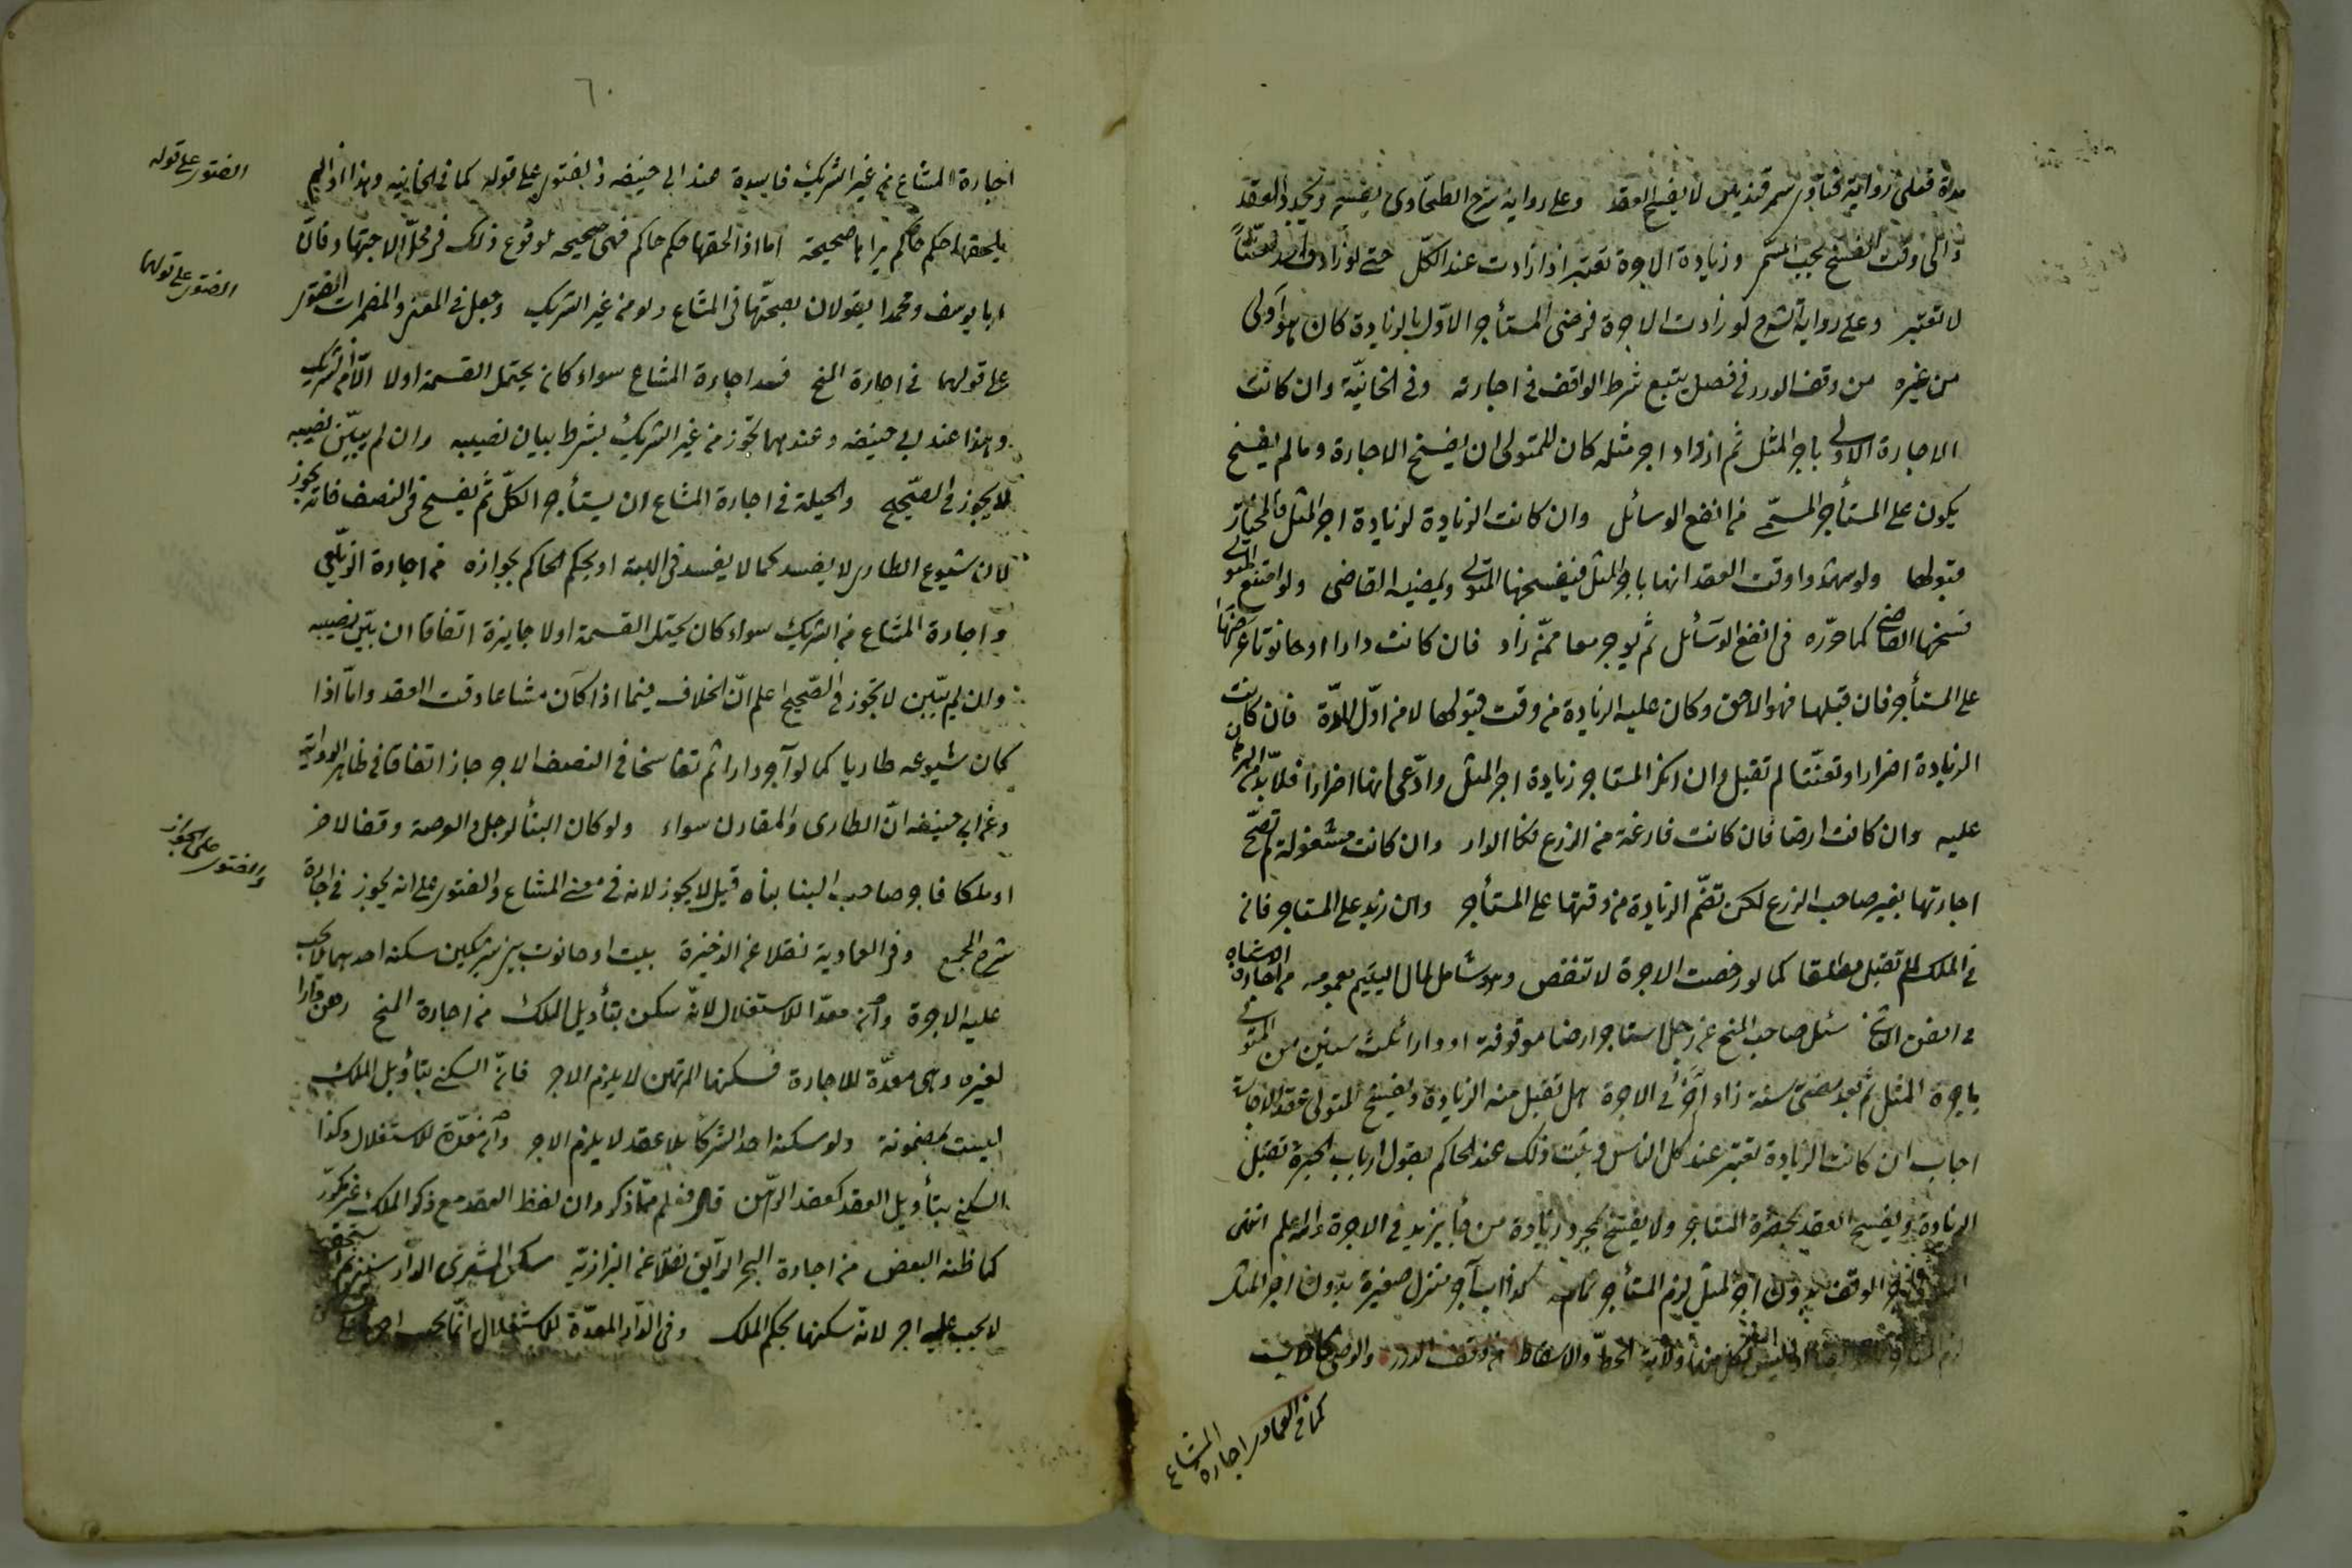 مدة فعلى رواية فتاوى سمرقند لا يفسخ العقد وعلى رواية شرح الطحاوى يفسخ ويجدد العقد
والى وقت الفسخ يجب المسمى وزيادة الاجرة تعتبر اذا زادت عند الكل حتى لو زاد واحد تعنتاً
لا تعتبر وعلى رواية الشرح لو زادت الاجرة فرضى المستأجر الاوّل بالزيادة كان هو اولى
من غيره من وقف الدرر فى فصل يتبع شرط الواقف فى اجارته وفى الخانيّة وان كانت
الاجارة الاولى باجر المثل ثم ازداد اجر مثله كان للمتولى ان يفسخ الاجارة وما لم يفسخ
يكون على المستأجر المسمّى من انفع الوسائل وان كانت الزيادة لزيادة اجر المثل فالمختار
قبولها ولو شهدوا وقت العقد انها باجر المثل فيفسخها المتولى ويمضيه القاضى ولو امتنع المتولى
فسخها القاضى كما حرّره فى انفع الوسائل ثم يوجرها ممّن زاد فان كانت دارا او حانوتا عرضها
على المستأجر فان قبلها فهو الاحق وكان عليه الزيادة من وقت قبولها لا من اوّل المدّة فان كانت
الزيادة اضرارا وتعنّتا لم تقبل وان انكر المستاجر زيادة اجر المثل وادّعى انها اضرارا فلا بدّ من البرهان
عليه وان كانت ارضا فان كانت فارغة من الزرع فكالدار وان كانت مشغولة لم تصحّ
اجارتها بغير صاحب الزرع لكن تضمّ الزيادة من وقتها على المستأجر وان زيد على المستاجر فان
فى الملك لم تقبل مطلقا كما لو رخصت الاجرة لا تنقض وهو شامل لمال اليتيم بعمومه من اجارة الاشباه
فى الفن الثانى سئل صاحب المنح عن رجل استاجر ارضا موقوفة او دارا ثلث سنين من المتولى
باجرة المثل ثم بعد مضى سنة زاد آخر فى الاجرة هل تقبل منه الزيادة ويفسخ المتولى عقد الاجارة
اجاب ان كانت الزيادة تعتبر عند كل الناس وثبت ذلك عند الحاكم بقول ارباب الخبرة تقبل
الزيادة ويفسخ العقد بحضرة المستاجر ولا يفسخ بمجرد زيادة من جا يزيد فى الاجرة والله اعلم انتهى
الوقف بدون اجر المثل لزم المستأجر تمامه كذا اب آجر منزل صغيره بدون اجر المثل
اذ ليس لكل منهما ولاية الحطّ والاسقاط من وقف الدرر والوصى كالاب
كما فى العمادى اجارة المشاع
٦٠
اجارة المشاع من غير الشريك فاسدة عند ابى حنيفه والفتوى على قوله كما فى الخانيه وهذا اذا لم
يلحقها حكم حاكم يراها صحيحة اما اذا لحقها حكم حاكم فهى صحيحه لوقوع ذلك فى محل الاجتهاد فان
ابا يوسف ومحمدا يقولان بصحّتها فى المشاع ولو من غير الشريك وجعل فى المغنى والمضمرات الفتوى
على قولهما فى اجارة المنح فسد اجارة المشاع سواء كان يحتمل القسمة او لا الّا من الشريك
وهذا عند ابى حنيفه وعندهما تجوز من غير الشريك بشرط بيان نصيبه وان لم يبيّن نصيبه
لا يجوز فى الصّحيح والحيلة فى اجارة المشاع ان يستأجر الكلّ ثم يفسخ فى النصف فانه يجوز
لان شيوع الطارى لا يفسد كما لا يفسد فى الهبة او يحكم الحاكم بجوازه من اجارة الزيلعى
واجارة المشاع من الشريك سواء كان يحتمل القسمة اولا جايزة اتفاقا ان بيّن نصيبه
وان لم يبيّن لا تجوز فى الصّحيح اعلم انّ الخلاف فيما اذا كان مشاعا وقت العقد وامّا اذا
كان شيوعه طاريا كما لو آجر دارا ثم تفاسخا فى النصف الاجر جاز اتفاقا فى ظاهر الرواية
وعن ابى حنيفه انّ الطارى والمقارن سواء ولو كان البنأ لرجل والعرصة وقفا لاخر
او ملكا فاجر صاحب البنا بناه قيل لا يجوز لانه فى معنى المشاع والفتوى على انه يجوز فى اجارة
شرح المجمع وفى العمادية نقلا عن الذخيرة بيت او حانوت بين شريكين سكنه احدهما لا يجب
عليه الاجرة وان معدّا للاستغلال لانّه سكن بتأويل الملك من اجارة المنح رهن دارا
لغيره وهى معدّة للاجارة فسكنها المرتهن لا يلزم الاجر فانّ السكنى بتأويل الملك
ليست بمضمونة ولو سكنه احد الشركا بلا عقد لا يلزم الاجر وان معدّة للاستغلال وكذا
السكنى بتأويل العقد كعقد الرّهن قال فعلم ممّا ذكر وان لفظ العقد مع ذكر الملك غير مكرّر
كما ظنه البعض من اجارة البحر الرآيق نقلا عن البزازيّه سكن المشترى الدار سنين ثم استحقت
لا يجب عليه اجر لانه سكنها بحكم الملك وفى الدّار المعدّة للاستغلال انّما يجب اجر
الفتوى على قوله
الفتوى على قولهما
والفتوى على الجواز